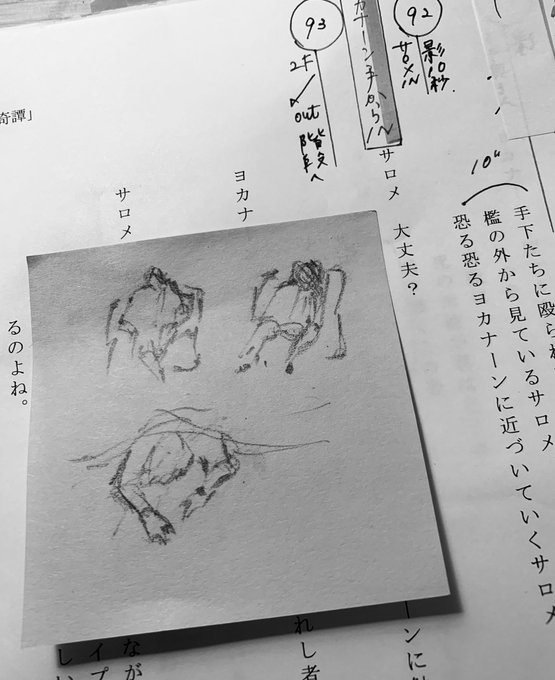 手下たちに殴られ
檻の外から見ているサロメ
恐る恐るヨカナーンに近づいていくサロメ
10"
92
影10秒.
サロメIN
サロメ 大丈夫?
ーンに
93
2F
out 階段へ
ヨカナ
れし者
サロメ
なが
イプ
しい
るのよね。
奇譚」